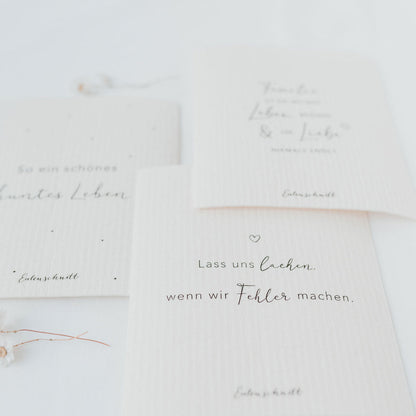 Familie
Leben
& die Liebe
Eulenschnitt
So ein schönes
buntes Leben
Eulenschnitt
Lass uns lachen,
wenn wir Fehler machen.
Eulenschnitt